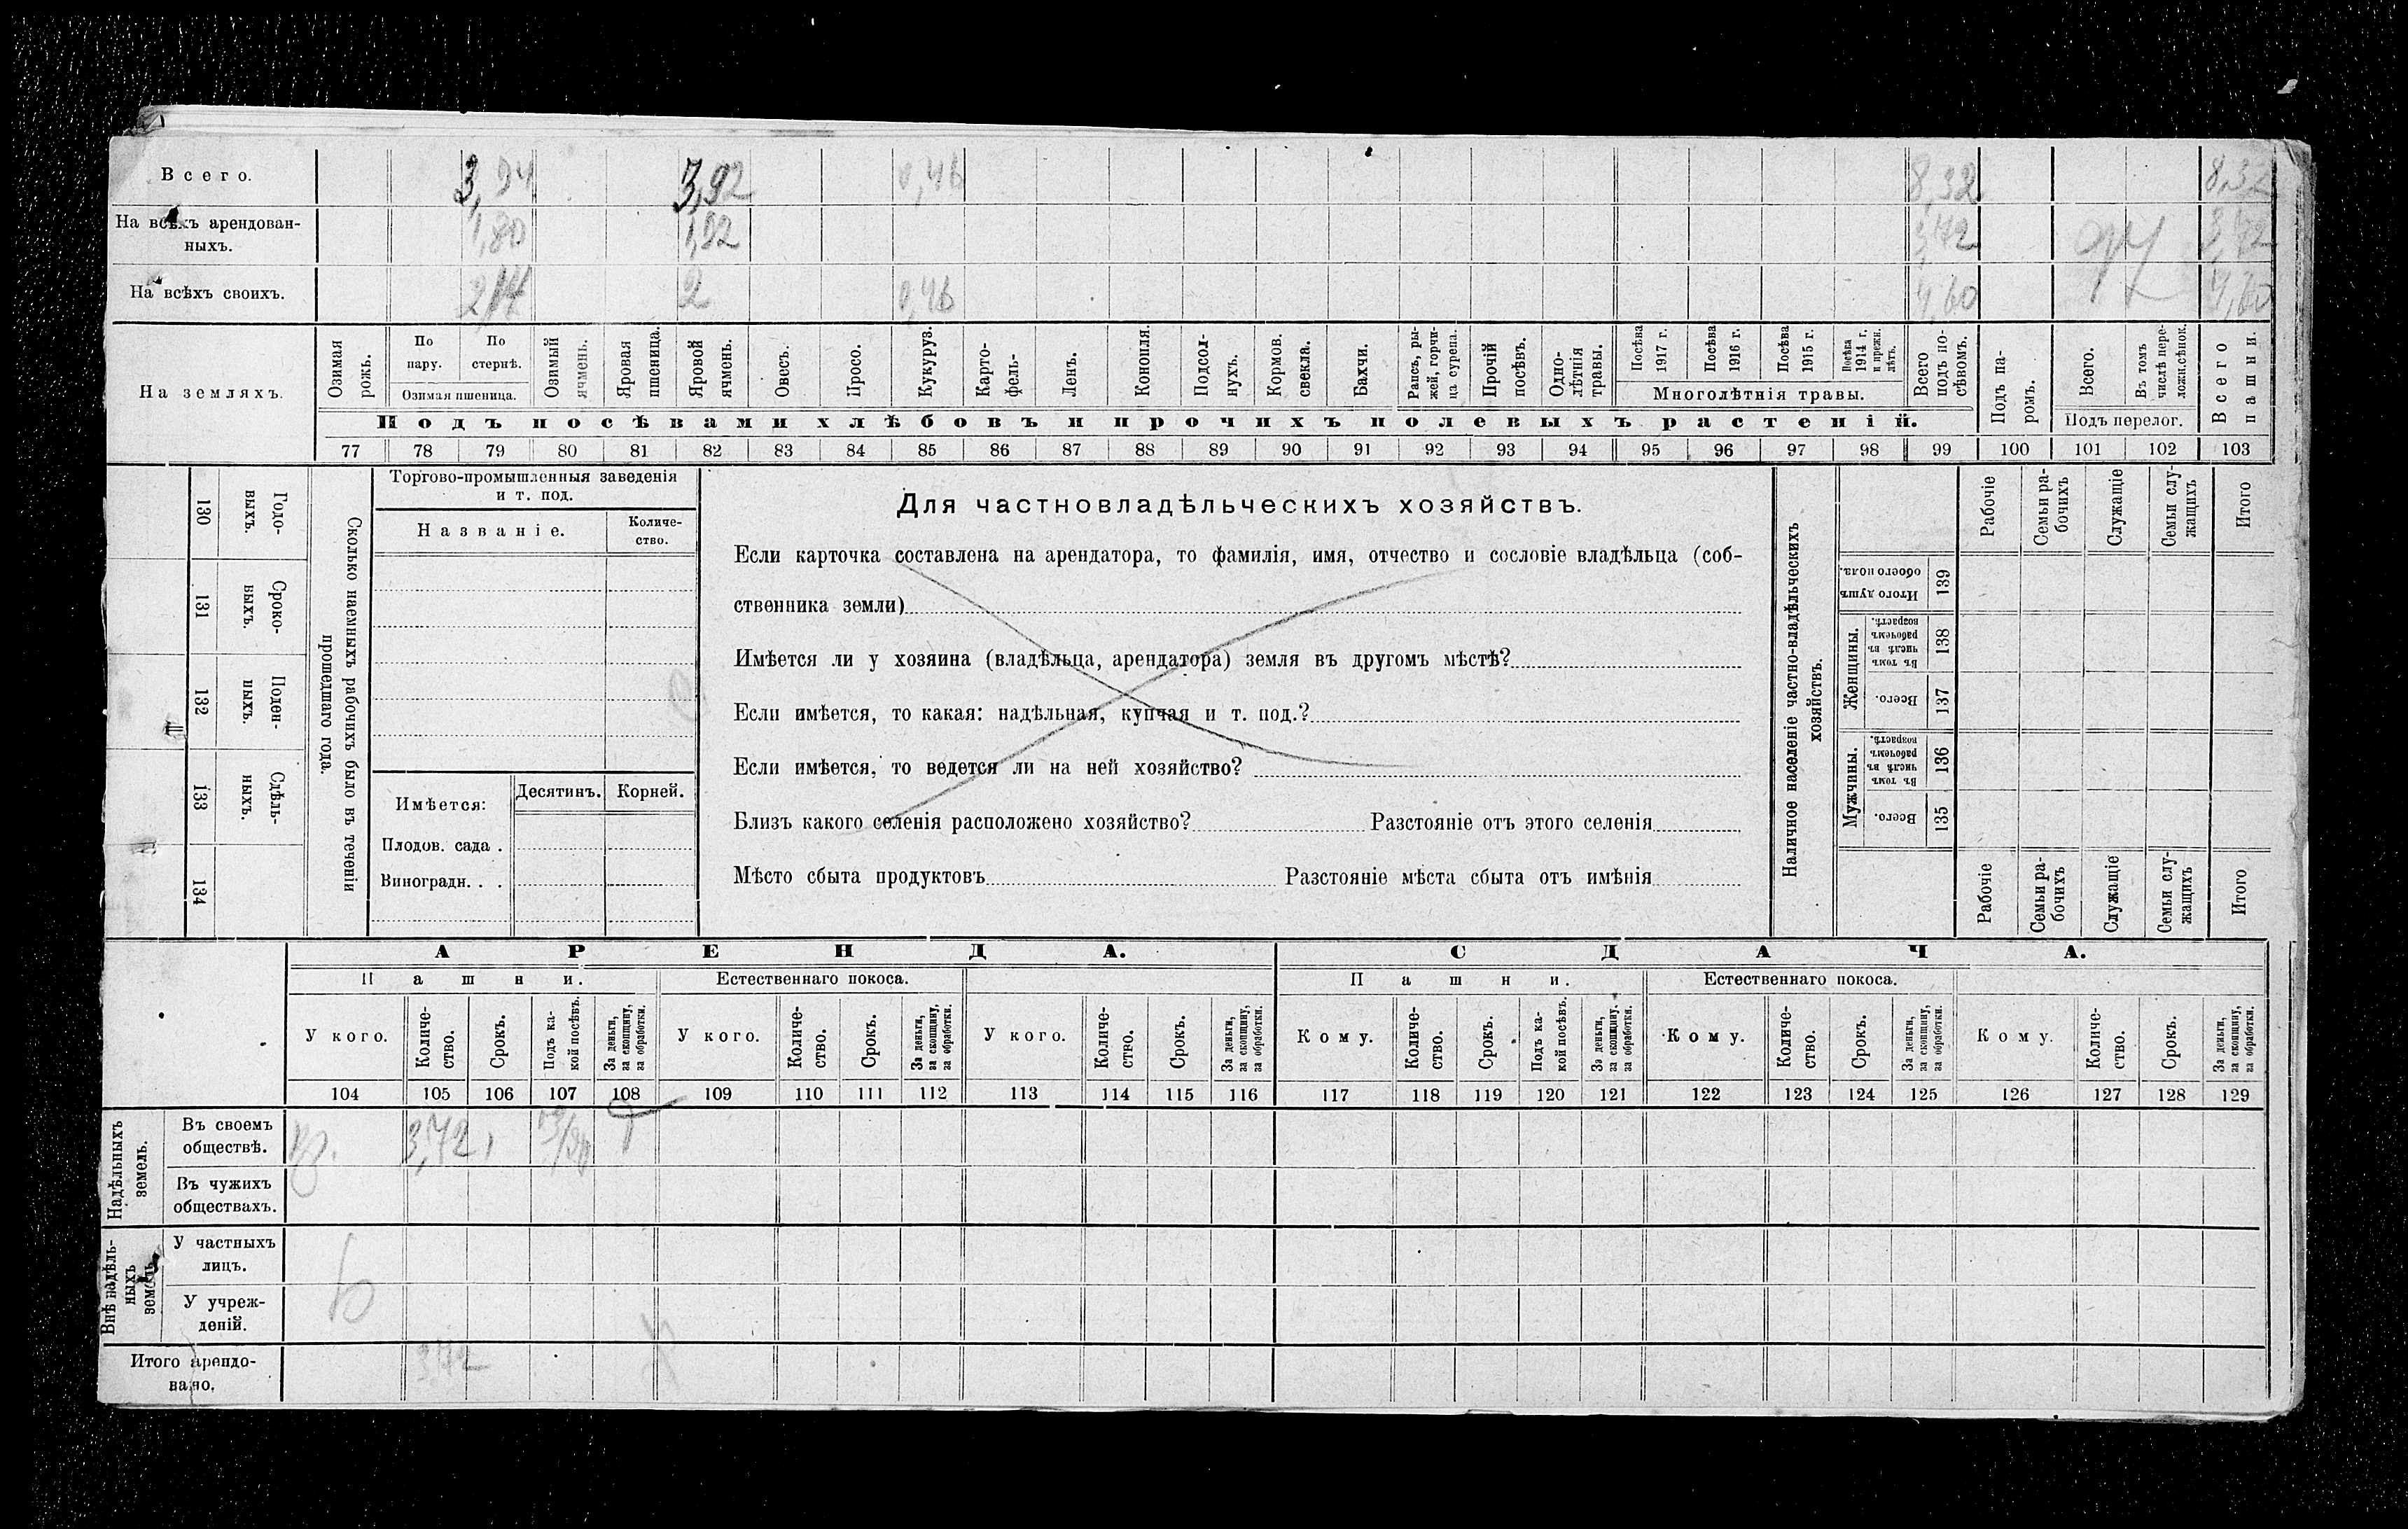 Всего. 3,94 3,92 0,46 8,32 8,32
На всѣхъ арендован-
ныхъ. 1,80 1,92 3,72 3,72
На всѣхъ своихъ. 2,14 2 0,46 4,60 4,60
На земляхъ.
Озимая рожь.
По пару.
По стернѣ.
Озимая пшеница.
Озимый ячмень.
Яровая пшеница.
Яровой ячмень.
Овесъ.
Просо.
Кукуруз.
Карто-
фель-
Ленъ.
Конопля.
Подсол-
нухъ.
Кормов.
свекла.
Бахчи.
Рапсъ, ры-
жей, горчи-
ца сурепа.
Прочій
посѣвъ.
Одно-
лѣтнія
травы.
Посѣва
1917 г.
Посѣва
1916 г.
Посѣва
1915 г.
Посѣва
1914 г.
и прежн.
лѣтъ.
Многолѣтнія травы.
Всего
подъ по-
сѣвомъ.
Подъ па-
ромъ.
Всего.
Въ томъ
числѣ пере-
ложн.сѣнок.
Подъ перелог.
Всего
пашни.
Подъ посѣвами хлѣбовъ и прочихъ полевыхъ растеній.
77 78 79 80 81 82 83 84 85 86 87 88 89 90 91 92 93 94 95 96 97 98 99 100 101 102 103
130 Годо-
выхъ.
131 Сроко-
ныхъ.
132 Поден-
ныхъ.
133 Сдѣль-
ныхъ.
134
Сколько наемныхъ рабочихъ было въ теченіи
прошедшаго года.
Торгово-промышленныя заведенія
и т. под.
Названіе.
Количе-
ство.
Имѣется:
Десятинъ. Корней.
Плодов. сада .
Виноградн. . .
Для частновладѣльческихъ хозяйствъ.
Если карточка составлена на арендатора, то фамилія, имя, отчество и сословіе владѣльца (соб-
ственника земли)
Имѣется ли у хозяина (владѣльца, арендатора) земля въ другомъ мѣстѣ?
Если имѣется, то какая: надѣльная, купчая и т. под.?
Если имѣется, то ведется ли на ней хозяйство?
Близъ какого селенія расположено хозяйство? Разстояніе отъ этого селенія
Мѣсто сбыта продуктовъ Разстояніе мѣста сбыта отъ имѣнія
Наличное населеніе частно-владѣльческихъ
хозяйствъ.
Рабочіе
Семьи ра-
бочихъ
Служащіе
Семьи слу-
жащихъ
Итого
Итого душъ
обоего пола.
139
Женщины.
Въ томъ
числѣ въ
рабочемъ
возрастѣ.
138
Всего.
137
Мужчины.
Въ томъ
числѣ въ
рабочемъ
возрастѣ.
136
Всего.
135
Рабочіе
Семьи ра-
бочихъ
Служащіе
Семьи слу-
жащихъ
Итого
АРЕНДА. СДАЧА.
Пашни. Естественнаго покоса. Пашни. Естественнаго покоса.
У кого.
Количе-
ство.
Срокъ.
Подъ ка-
кой посѣвъ.
За деньги,
за скопщину,
за обработки.
У кого.
Количе-
ство.
Срокъ.
За деньги,
за скопщину,
за обработки.
У кого.
Количе-
ство.
Срокъ.
За деньги,
за скопщину,
за обработки.
Кому.
Количе-
ство.
Срокъ.
Подъ ка-
кой посѣвъ.
За деньги,
за скопщину,
за обработки.
Кому.
Количе-
ство.
Срокъ.
За деньги,
за скопщину,
за обработки.
Кому.
Количе-
ство.
Срокъ.
За деньги,
за скопщину,
за обработки.
104 105 106 107 108 109 110 111 112 113 114 115 116 117 118 119 120 121 122 123 124 125 126 127 128 129
Надѣльныхъ
земель.
Въ своемъ
обществѣ. 3,72 1
Въ чужихъ
обществахъ.
Внѣ надѣль-
ныхъ
земель.
У частныхъ
лицъ.
У учреж-
деній.
Итого арендо-
вано. 3,72